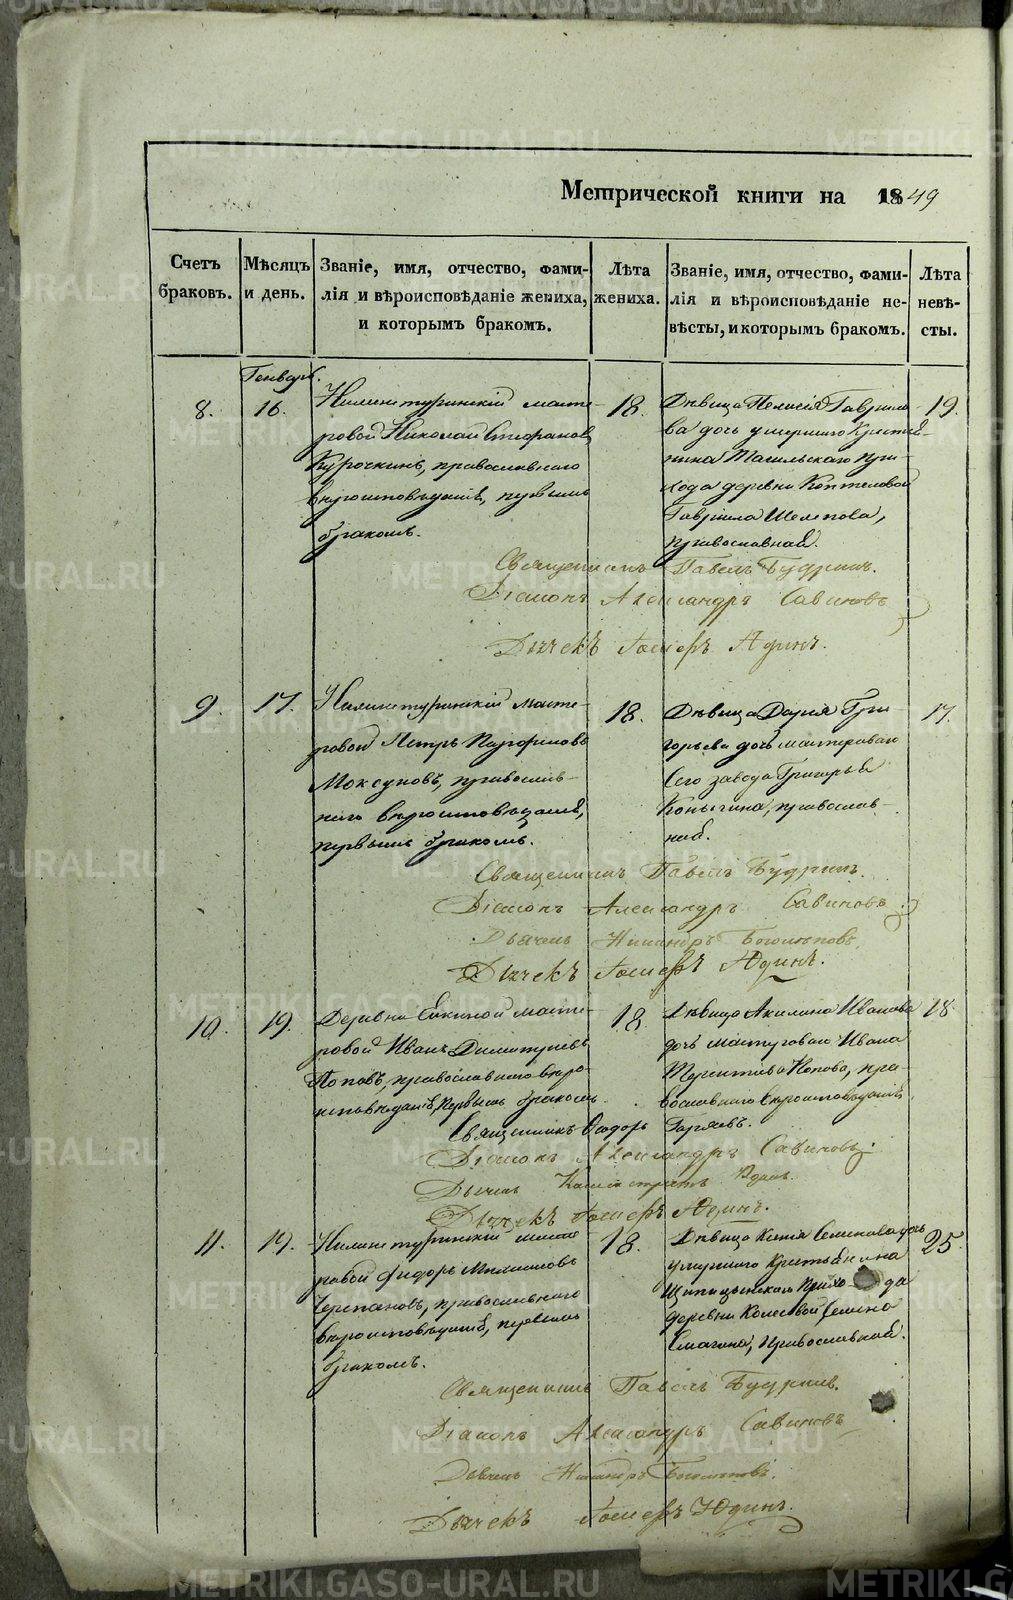 METRIKI.GASO-URAL.RU
Метрической книги на 1849
Счетъ браковъ.
Мѣсяцъ и день.
Званіе, имя, отчество, фами-
лія и вѣроисповѣданіе жениха,
и которымъ бракомъ.
Лѣта
жениха.
Званіе, имя, отчество, фами-
лія и вѣроисповѣданіе не-
вѣсты, и которымъ бракомъ.
Лѣта
невѣ-
сты.
Генварь.
8.
16.
масте-
ровой Николай Стефановъ
Курочкинъ, православнаго
вѣроисповѣданія, первымъ
бракомъ.
18.
Дѣвица Гаврило-
ва дочь умершаго Крестья-
нина Тагильскаго при-
хода деревни Коптеловой
Гаврiила Шелепова,
православной.
19.
Священникъ Павелъ Будринъ.
Діаконъ Александръ Савиновъ
Дьячекъ Юдинъ.
9.
17.
масте-
ровой Петръ Парфеновъ
православ-
наго вѣроисповѣданія,
первымъ бракомъ.
18.
Дѣвица Дарія Гри-
горьева дочь мастероваго
сего завода Григорья
православ-
ной.
17.
Священникъ Павелъ Будринъ.
Діаконъ Александръ Савиновъ
Дьячекъ Никандръ
Дьячекъ Юдинъ.
10.
19.
Деревни масте-
ровой Иванъ Димитріевъ
Поповъ, православнаго вѣро-
исповѣданія, первымъ бракомъ.
18.
Дѣвица Акилина Иванова
дочь мастероваго Ивана
Терентьева Попова, пра-
вославнаго вѣроисповѣданія.
18.
Священникъ Ѳеодоръ
Діаконъ Александръ Савиновъ.
Дьячекъ
Дьячекъ Юдинъ.
11.
19.
масте-
ровой Федоръ
Черепановъ, православнаго
вѣроисповѣданія, первымъ
бракомъ.
18.
Дѣвица Ксенія Семенова дочь
умершаго Крестьянина
прихода
деревни Колесовой Семена
Смагина, православной.
25.
Священникъ Павелъ Будринъ.
Діаконъ Александръ Савиновъ
Дьячекъ Никандръ
Дьячекъ Юдинъ.